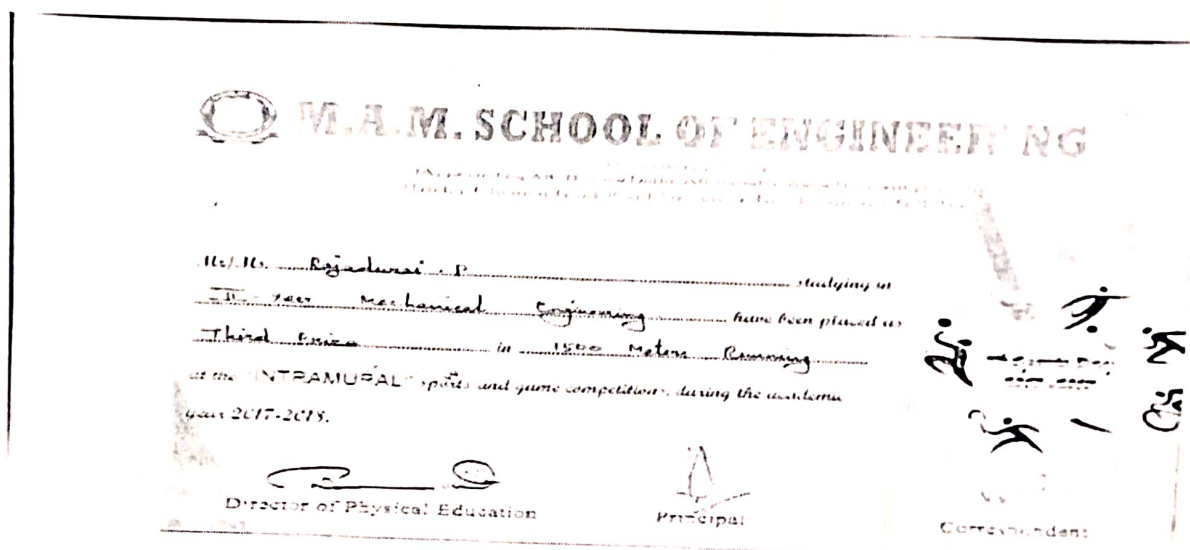 M.A.M. SCHOOL OF ENGINEERING
Mr/Ms. Rajadurai . P studying in
II - Year Mechanical Engineering have been placed as
Third Prize in 1500 Meters Running
at the "INTRAMURAL" sports and game competitions, during the academic
year 2017-2018.
Director of Physical Education
Principal
Correspondent